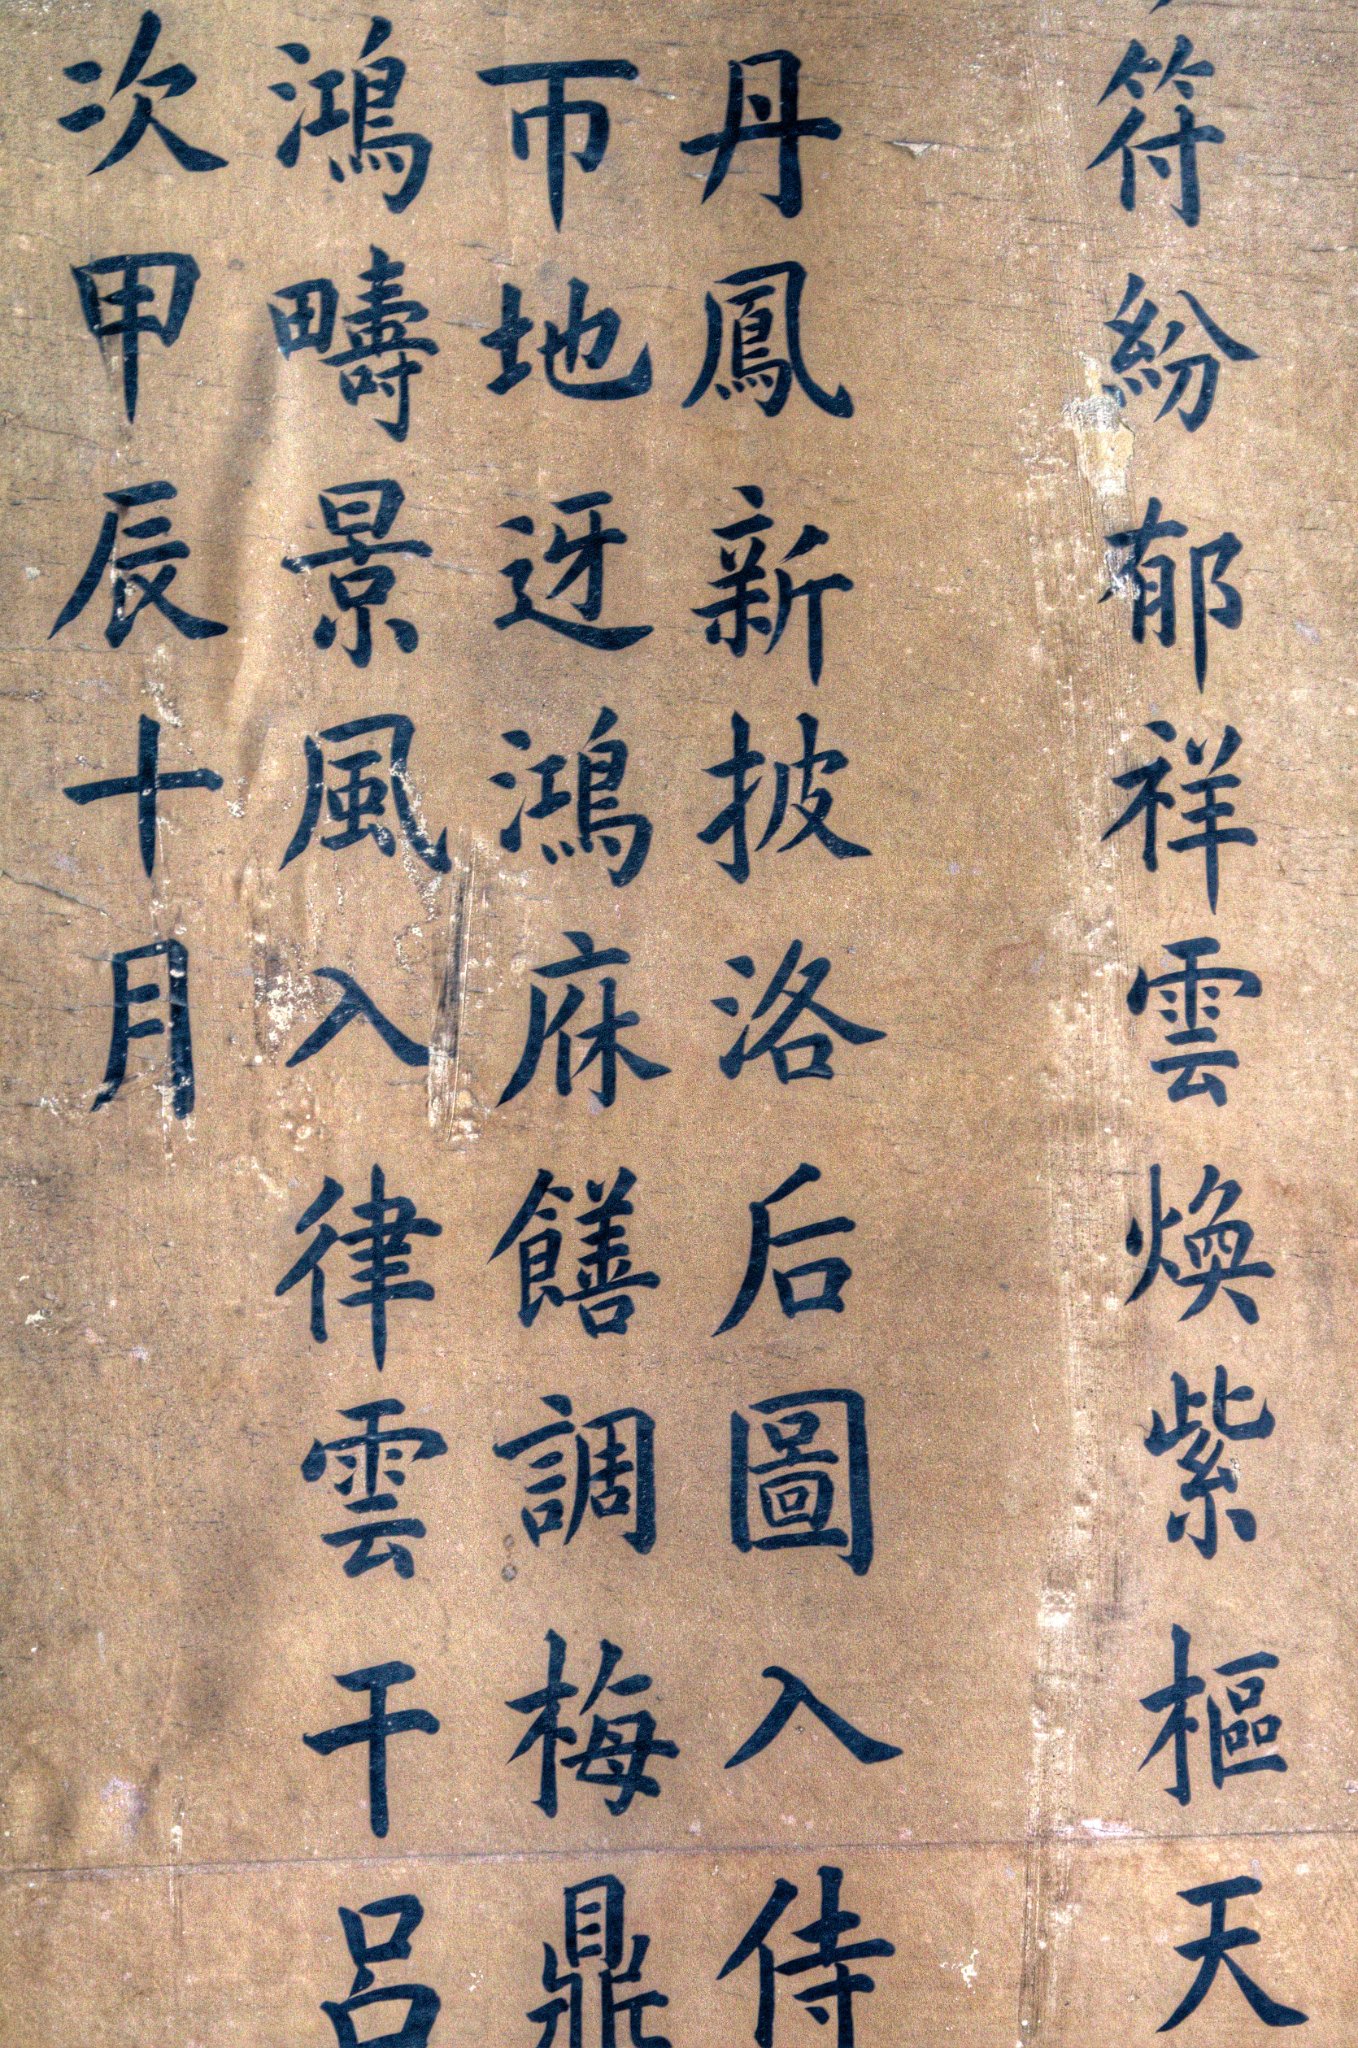 符紛郁祥雲煥紫樞天
丹鳳新披洛后圖入侍
帀地迓鴻庥饍調梅鼎
鴻疇景風入律雲干呂
次甲辰十月